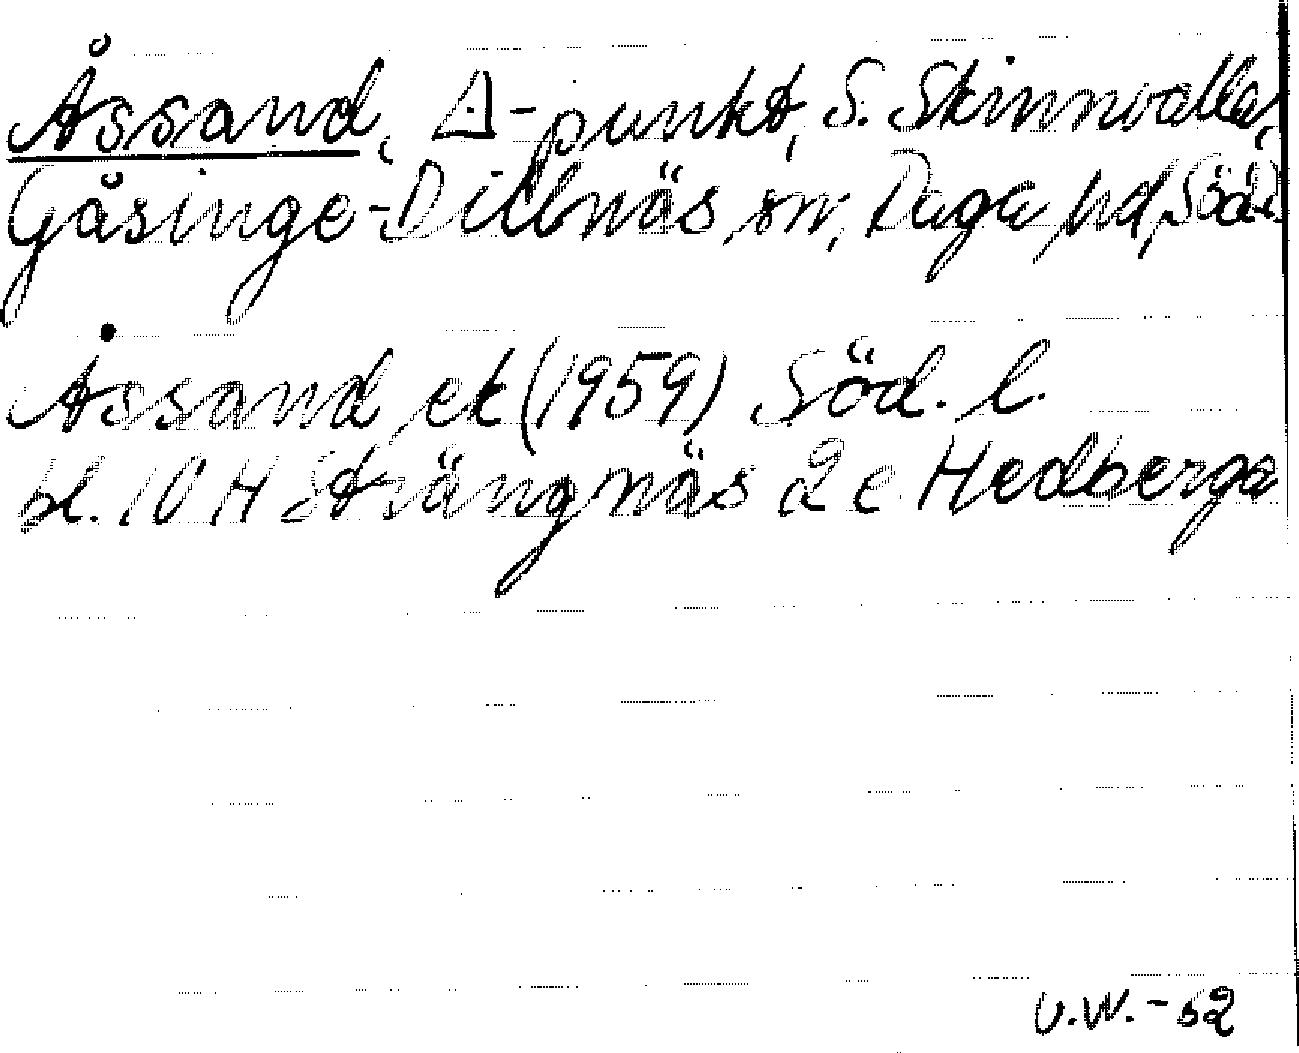 Åssand, △-punkt, S. Skinnvalla,
Gåsinge-Dillnäs sn, Daga hd, Söd
Åssand ek (1959) Söd. l.
bl. 10 H Strängnäs 2 c Hedberga
U.W. - 62